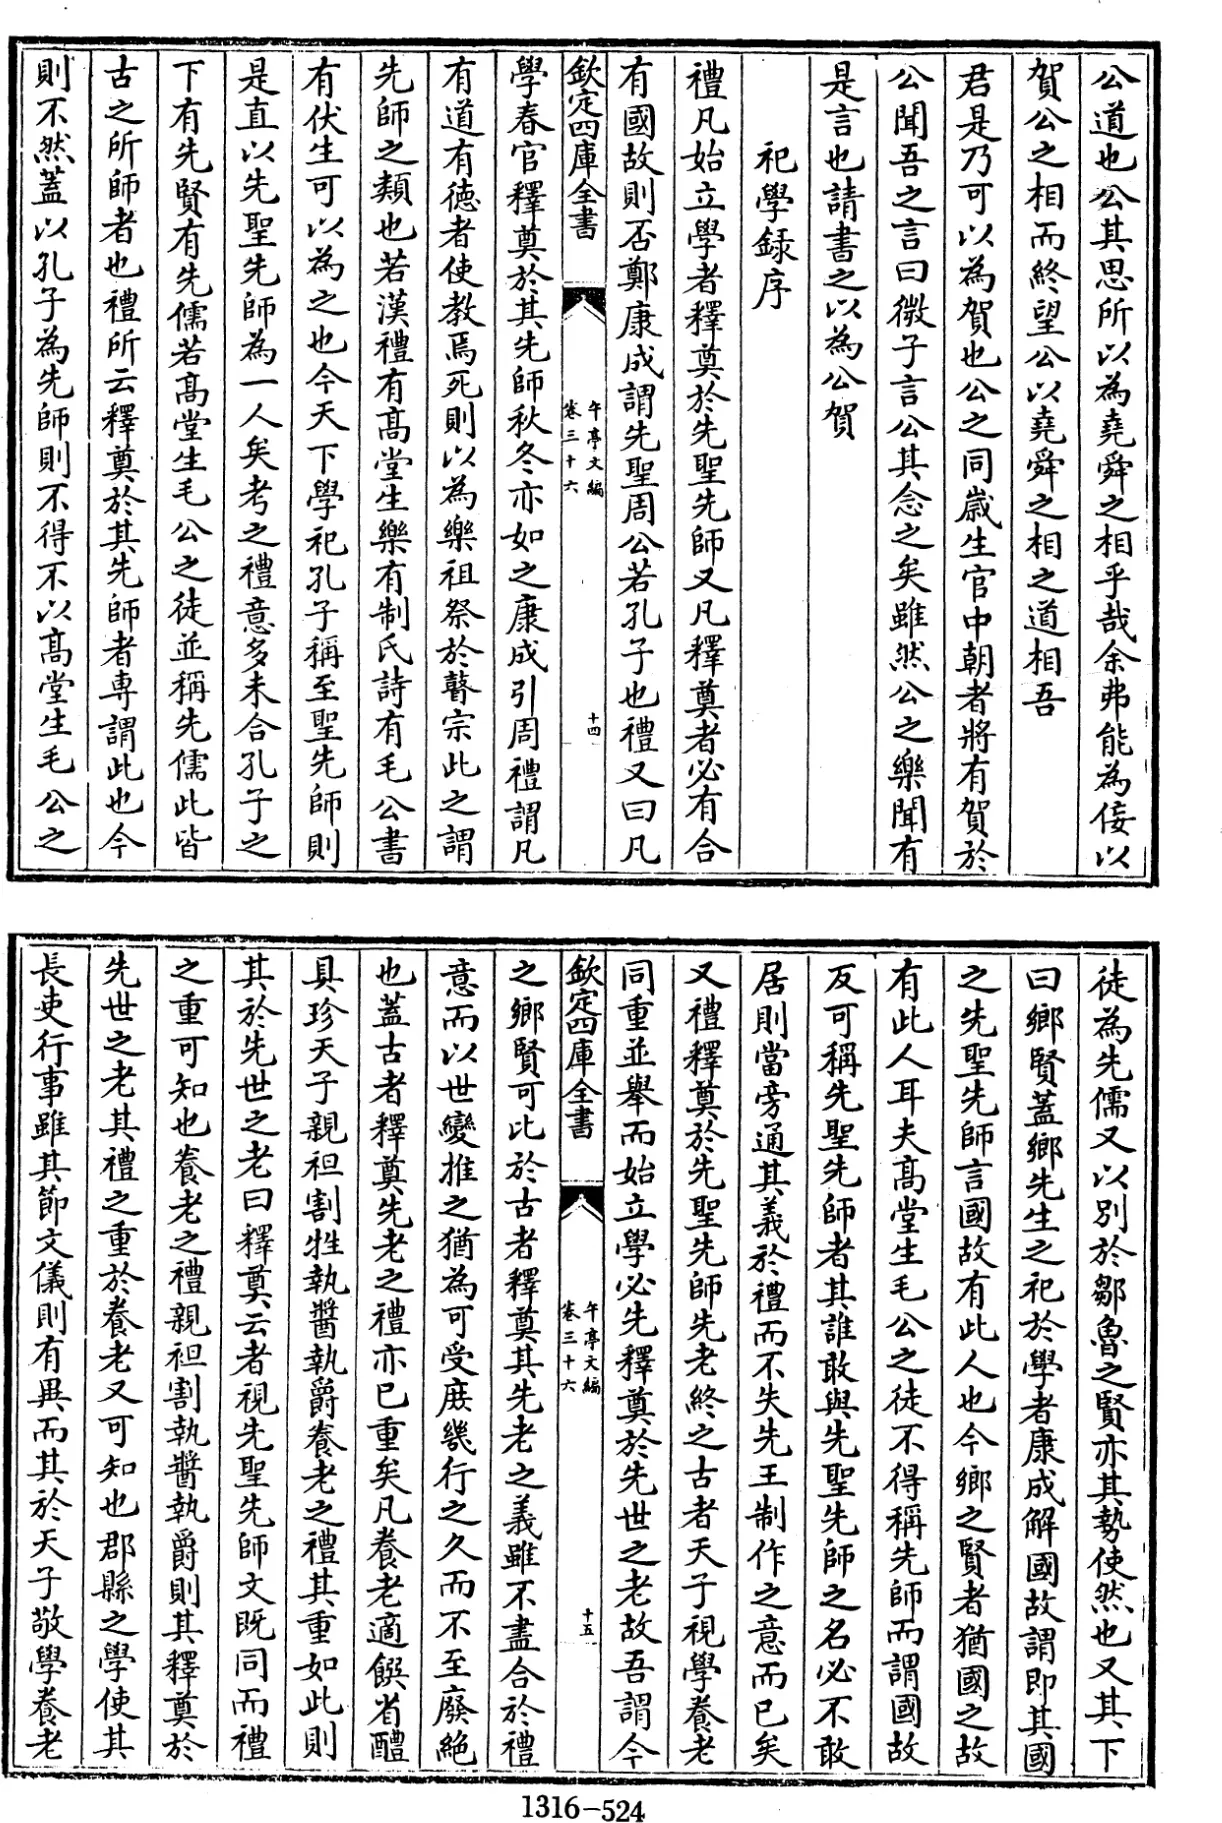 公道也公其思所以為堯舜之相乎哉余弗能為佞以
賀公之相而終望公以堯舜之相之道相吾
君是乃可以為賀也公之同歲生官中朝者將有賀於
公聞吾之言曰微子言公其念之矣雖然公之樂聞有
是言也請書之以為公賀
祀學録序
禮凡始立學者釋奠於先聖先師又凡釋奠者必有合
有國故則否鄭康成謂先聖周公若孔子也禮又曰凡
欽定四庫全書
午亭文編
卷三十六
十四
學春官釋奠於其先師秋冬亦如之康成引周禮謂凡
有道有徳者使教焉死則以為樂祖祭於瞽宗此之謂
先師之類也若漢禮有髙堂生樂有制氏詩有毛公書
有伏生可以為之也今天下學祀孔子稱至聖先師則
是直以先聖先師為一人矣考之禮意多未合孔子之
下有先賢有先儒若髙堂生毛公之徒並稱先儒此皆
古之所師者也禮所云釋奠於其先師者専謂此也今
則不然蓋以孔子為先師則不得不以髙堂生毛公之
徒為先儒又以別於鄒魯之賢亦其勢使然也又其下
曰鄉賢蓋鄉先生之祀於學者康成解國故謂即其國
之先聖先師言國故有此人也今鄉之賢者猶國之故
有此人耳夫髙堂生毛公之徒不得稱先師而謂國故
反可稱先聖先師者其誰敢與先聖先師之名必不敢
居則當旁通其義於禮而不失先王制作之意而已矣
又禮釋奠於先聖先師先老終之古者天子視學養老
同重並舉而始立學必先釋奠於先世之老故吾謂今
欽定四庫全書
午亭文編
卷三十六
十五
之鄉賢可比於古者釋奠其先老之義雖不盡合於禮
意而以世變推之猶為可受庶幾行之久而不至廢絶
也蓋古者釋奠先老之禮亦已重矣凡養老適饌省醴
具珍天子親袒割牲執醬執爵養老之禮其重如此則
其於先世之老曰釋奠云者視先聖先師文既同而禮
之重可知也養老之禮親袒割執醬執爵則其釋奠於
先世之老其禮之重於養老又可知也郡縣之學使其
長吏行事雖其節文儀則有異而其於天子敬學養老
1316-524